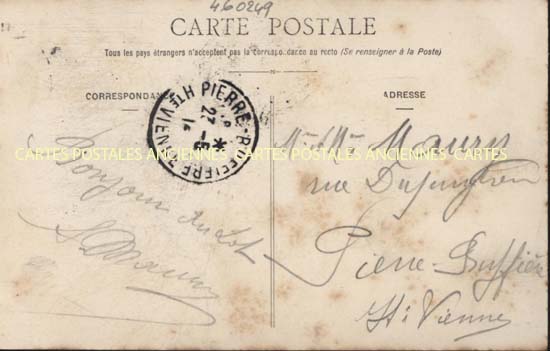 460249
CARTE POSTALE
Tous les pays étrangers n'acceptent pas la correspondance au recto (Se renseigner à la Poste)
CORRESPONDANCE
ADRESSE
PIERRE-BUFFIERE HTE VIENNE
27 -5
14
CARTES POSTALES ANCIENNES CARTES POSTALES ANCIENNES CARTES POSTALES ANCIENNES
Bonjour du Lot
Maury
rue Dupuytren
Pierre-Buffière
Hte Vienne